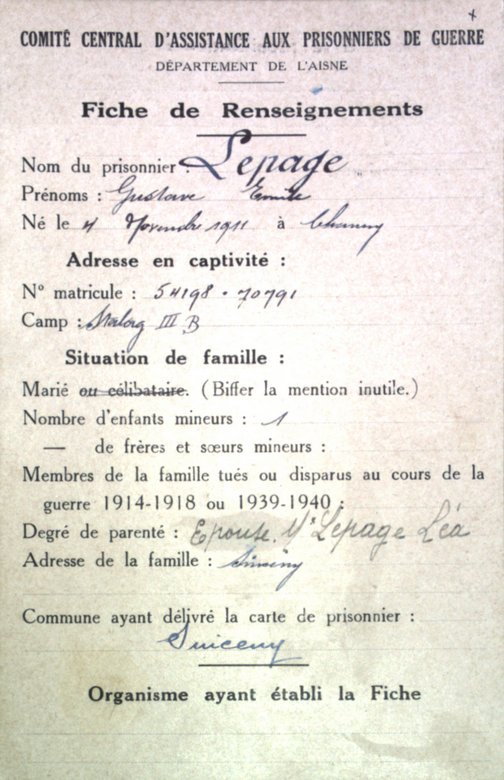 COMITÉ CENTRAL D'ASSISTANCE AUX PRISONNIERS DE GUERRE
DÉPARTEMENT DE L'AISNE
Fiche de Renseignements
Nom du prisonnier : Lepage
Prénoms : Gustave Emile
Né le 4 Novembre 1911 à Chauny
Adresse en captivité :
N° matricule : 54198 - 70791
Camp : Stalag III B
Situation de famille :
Marié ou célibataire. (Biffer la mention inutile.)
Nombre d'enfants mineurs : 1
— de frères et sœurs mineurs :
Membres de la famille tués ou disparus au cours de la
guerre 1914-1918 ou 1939-1940 :
Degré de parenté : Epouse. Lepage Léa
Adresse de la famille : Sinceny
Commune ayant délivré la carte de prisonnier :
Sinceny
Organisme ayant établi la Fiche